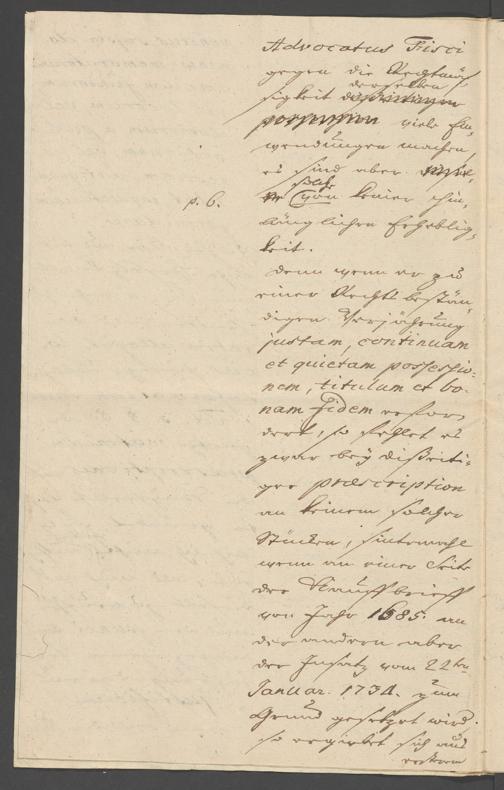 Advocatus Fisci
gegen die Rechtmäs-
sigkeit derselben
viele Ein-
wendungen machen,
es sind aber
solche von keiner hin-
p. 6.
länglichen Erheblig-
keit.
Denn wenn er zu
einer Rechts bestän-
digen Verjährung
justam, continuam
et quietam possessio-
nem, titulum et bo-
nam fidem erfor-
dert, so fehlet es
zwar bey disseiti-
ger præscription
an keinem solcher
Stücken, sintemahl
wenn an einer Seite
der Kauffbrieff
von Jahr 1685. an
der andern aber
der Insatz vom 22ten
Januar. 1734. zum
Grund gesetzet wird,
so ergiebet sich aus